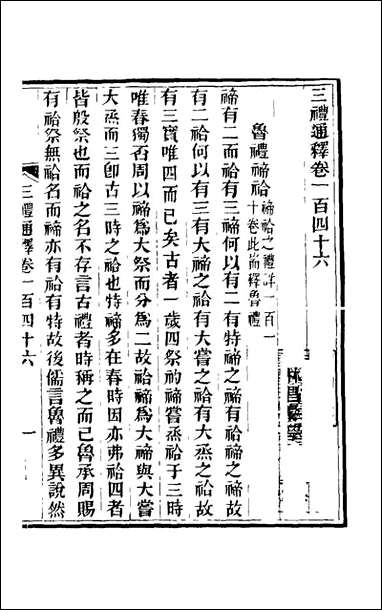 三禮通釋卷一百四十六
林昌彝學
魯禮禘祫禘祫之禮詳一百一
十卷此耑釋魯禮
禘有二而祫有三禘何以有二有特禘之禘有祫禘之禘故
有二祫何以有三有大禘之祫有大嘗之祫有大烝之祫故
有三實唯四而已矣古者一歲四祭礿禘嘗烝祫于三時
唯春獨否周以禘爲大祭而分爲二故祫禘爲大禘與大嘗
大烝而三卽古三時之祫也特禘多在春時因亦弗祫四者
皆殷祭也而祫之名不存言古禮者時稱之而已魯承周賜
有祫祭無祫名而禘亦有祫有特故後儒言魯禮多異說然
三禮通釋卷一百四十六
一